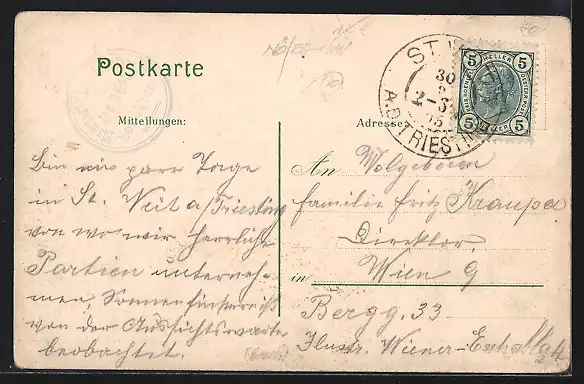 Postkarte
Mitteilungen:
Adresse:
ST. V
30
2-3
05
A.D. TRIESTING
5 HELLER 5
5 5
Bin mir paar Tage
in St. Veit a/Triesting
von wo wir herrliche
Partien unterneh-
men, Sonnenfinsterniß
von der Aussichtswarte
beobachtet.
An Wolgeboren
familie fritz Kraupa
Direktor
in Wien 9
Bergg. 33
Ilustr. Wiener-